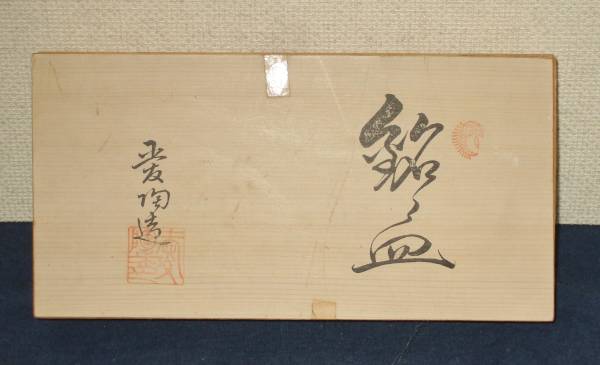 銘々皿
愛陶造